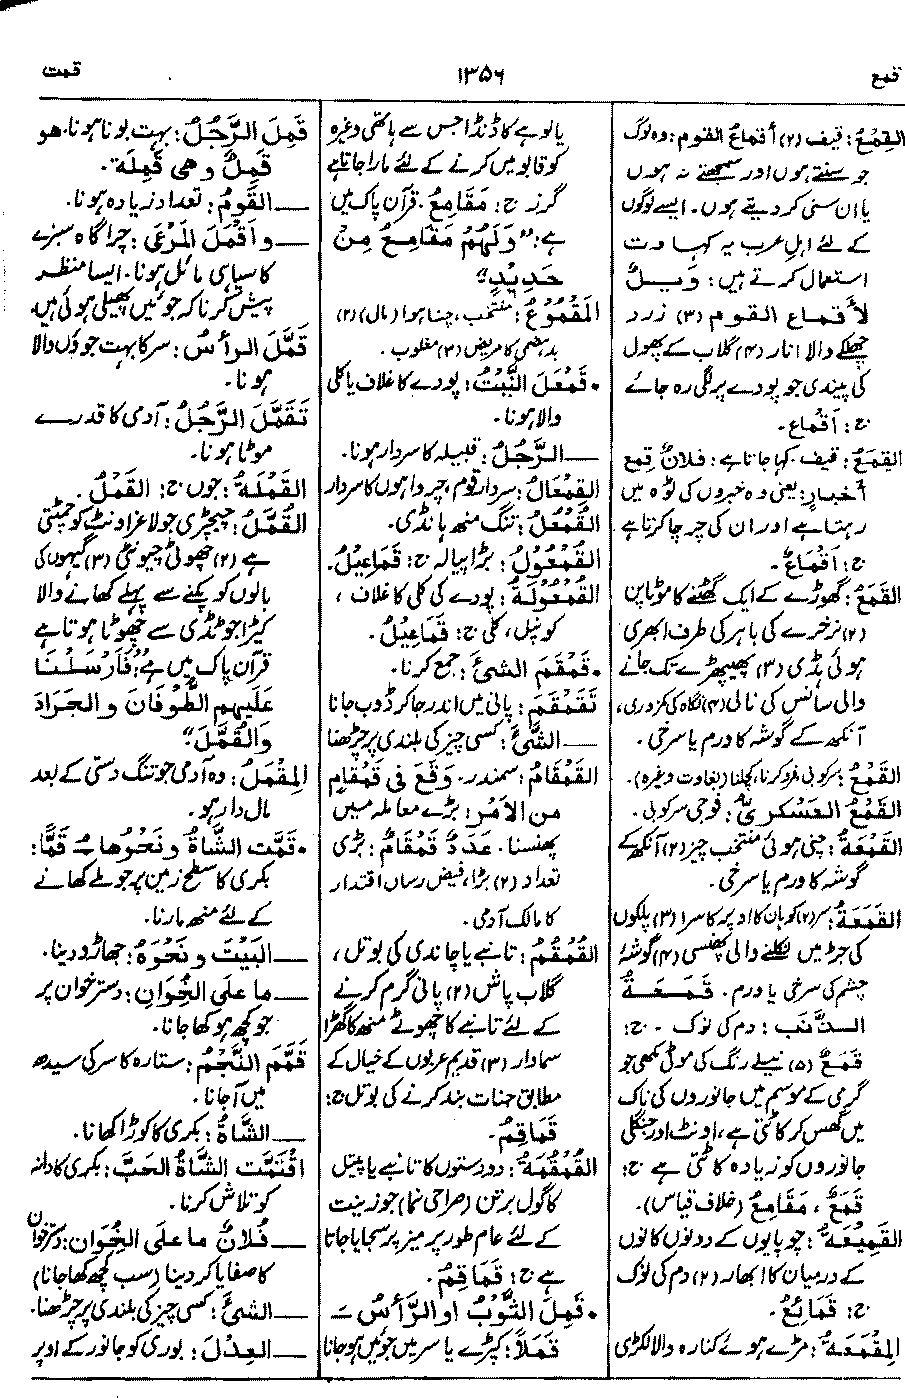 قمع
۱۳۵۶
قمت
القِمْعُ: قیف (۲) أقماعُ القوم: وہ لوگ
جو سنتے ہوں اور سمجھتے نہ ہوں
یا ان سنی کر دیتے ہوں۔ ایسے لوگوں
کے لئے اہلِ عرب یہ کہاوت
استعمال کرتے ہیں: وَیلٌ
لأقماع القوم (۳) زرد
چھلکے والا انار (۴) گلاب کے پھول
کی پیندی جو پودے پر لگی رہ جائے
ج: أقماع۔
القِمَعُ: قیف۔ کہا جاتا ہے: فلانٌ قِمع
أخبارٍ: یعنی وہ خبروں کی ٹوہ میں
رہتا ہے اور ان کی چرچا کرتا ہے
ج: أقماعٌ۔
القَمَعُ: گھوڑے کے ایک گھٹنے کا موٹاپن
(۲) نرخرے کی باہر کی طرف ابھری
ہوئی ہڈی (۳) پھیپھڑے تک جانے
والی سانس کی نالی (۴) نگاہ کی کمزوری،
آنکھ کے گوشہ کا ورم یا سرخی۔
القَمْعُ: سرکوبی، فرو کرنا، کچلنا (بغاوت وغیرہ)۔
القَمْعُ العَسْكَرِیُّ: فوجی سرکوبی۔
القُمْعَةُ: چنی ہوئی منتخب چیز (۲) آنکھ کے
گوشہ کا ورم یا سرخی۔
القَمَعَةُ: سر (۲) کوہان کا اوپر کا سرا (۳) پلکوں
کی جڑ میں نکلنے والی پھنسی (۴) گوشۂ
چشم کی سرخی یا ورم۔ قَمَعَةُ
الذَّنَب: دم کی نوک۔ ج:
قَمَعٌ (۵) نیلے رنگ کی موٹی مکھی جو
گرمی کے موسم میں جانوروں کی ناک
میں گھس کر کاٹتی ہے، اونٹ اور جنگلی
جانوروں کو زیادہ کاٹتی ہے ج:
قَمَعٌ، مَقَامِعُ (خلاف قیاس)۔
القَمِيْعَةُ: چوپایوں کے دونوں کانوں
کے درمیان کا ابھار (۲) دم کی نوک
ج: قَمَائِعُ۔
المِقْمَعَةُ: مڑے ہوئے کنارہ والا لکڑی
یا لوہے کا ڈنڈا جس سے ہاتھی وغیرہ
کو قابو میں کرنے کے لئے مارا جاتا ہے
گرز ج: مَقَامِعُ۔ قرآن پاک میں
ہے: ”وَلَهُمْ مَقَامِعُ مِنْ
حَدِيْدٍ“
المَقْمُوْعُ: منتخب، چنا ہوا (مال) (۲)
بدہضمی کا مریض (۳) مغلوب۔
• قَمْعَلَ النَّبْتُ: پودے کا غلاف یا کلی
والا ہونا۔
— الرَّجُلُ: قبیلہ کا سردار ہونا۔
القِمْعَالُ: سردار قوم، چرواہوں کا سردار
القُمْعُلُ: تنگ منھ ہانڈی۔
القُمْعُوْلُ: بڑا پیالہ ج: قَمَاعِيْلُ۔
القُمْعُوْلَةُ: پودے کی کلی کا غلاف،
کونپل، کلی ج: قَمَاعِيْلُ۔
• قَمْقَمَ الشیءَ: جمع کرنا۔
تَقَمْقَمَ: پانی میں اندر جا کر ڈوب جانا
— الشَّیْءَ: کسی چیز کی بلندی پر چڑھنا
القَمْقَامُ: سمندر۔ وَقَعَ فی قَمْقَامٍ
من الأمر: بڑے معاملہ میں
پھنسنا۔ عَدَدٌ قَمْقَامٌ: بڑی
تعداد (۲) بڑا، فیض رساں اقتدار
کا مالک آدمی۔
القُمْقُمُ: تانبے یا چاندی کی بوتل،
گلاب پاش (۲) پانی گرم کرنے
کے لئے تانبے کا چھوٹے منھ کا گھڑا
سماوار (۳) قدیم عربوں کے خیال کے
مطابق جنات بند کرنے کی بوتل ج:
قَمَاقِمُ۔
القُمْقُمَةُ: دو دستوں کا تانبے یا پیتل
کا گول برتن (صراحی نما) جو زینت
کے لئے عام طور پر میز پر سجایا جاتا
ہے ج: قَمَاقِمُ۔
• قَمِلَ الثَّوْبُ او الرَّأسُ —َ
قَمَلاً: کپڑے یا سر میں جوئیں ہو جانا
قَمِلَ الرَّجُلُ: بہت بونا ہونا۔ هو
قَمِلٌ وهی قَمِلَة۔
— القَوْمُ: تعداد زیادہ ہونا۔
— وأقْمَلَ المَرْعَى: چراگاہ سبزے
کا سیاہی مائل ہونا۔ ایسا منظر
پیش کرنا کہ جوئیں پھیلی ہوئی ہیں۔
قَمَّلَ الرأسُ: سر کا بہت جوؤں والا
ہونا۔
تَقَمَّلَ الرَّجُلُ: آدمی کا قدرے
موٹا ہونا۔
القَمْلَةُ: جوں ج: القَمْلُ۔
القُمَّلُ: چیچڑی جو لاغر اونٹ کو چمٹتی
ہے (۲) چھوٹی چیونٹی (۳) گیہوں کی
بالوں کو پکنے سے پہلے کھانے والا
کیڑا جو ٹڈی سے چھوٹا ہوتا ہے
قرآن پاک میں ہے: ”فَأَرْسَلْنَا
عَلَيهِم الطُّوْفَانَ والجَرَادَ
وَالقُمَّلَ“۔
المِقْمَلُ: وہ آدمی جو تنگ دستی کے بعد
مال دار ہو۔
• قَمَّت الشَّاةُ ونَحْوُها —ُ قَمًّا:
بکری کا سطح زمین پر جو ملے کھانے
کے لئے منھ مارنا۔
— البَيْتَ ونَحْوَهُ: جھاڑو دینا۔
— ما على الخُِوَانِ: دسترخوان پر
جو کچھ ہو کھا جانا۔
قَمَّمَ النَّجْمُ: ستارہ کا سر کی سیدھ
میں آ جانا۔
— الشَّاةُ: بکری کا کوڑا کھانا۔
اقْتَمَّت الشَّاةُ الحَبَّ: بکری کا دانہ
کو تلاش کرنا۔
— فُلانٌ ما على الخُِوَان: دسترخوان
کا صفایا کر دینا (سب کچھ کھا جانا)
— الشیءَ: کسی چیز کی بلندی پر چڑھنا۔
— العِدْلَ: بوری کو جانور کے اوپر